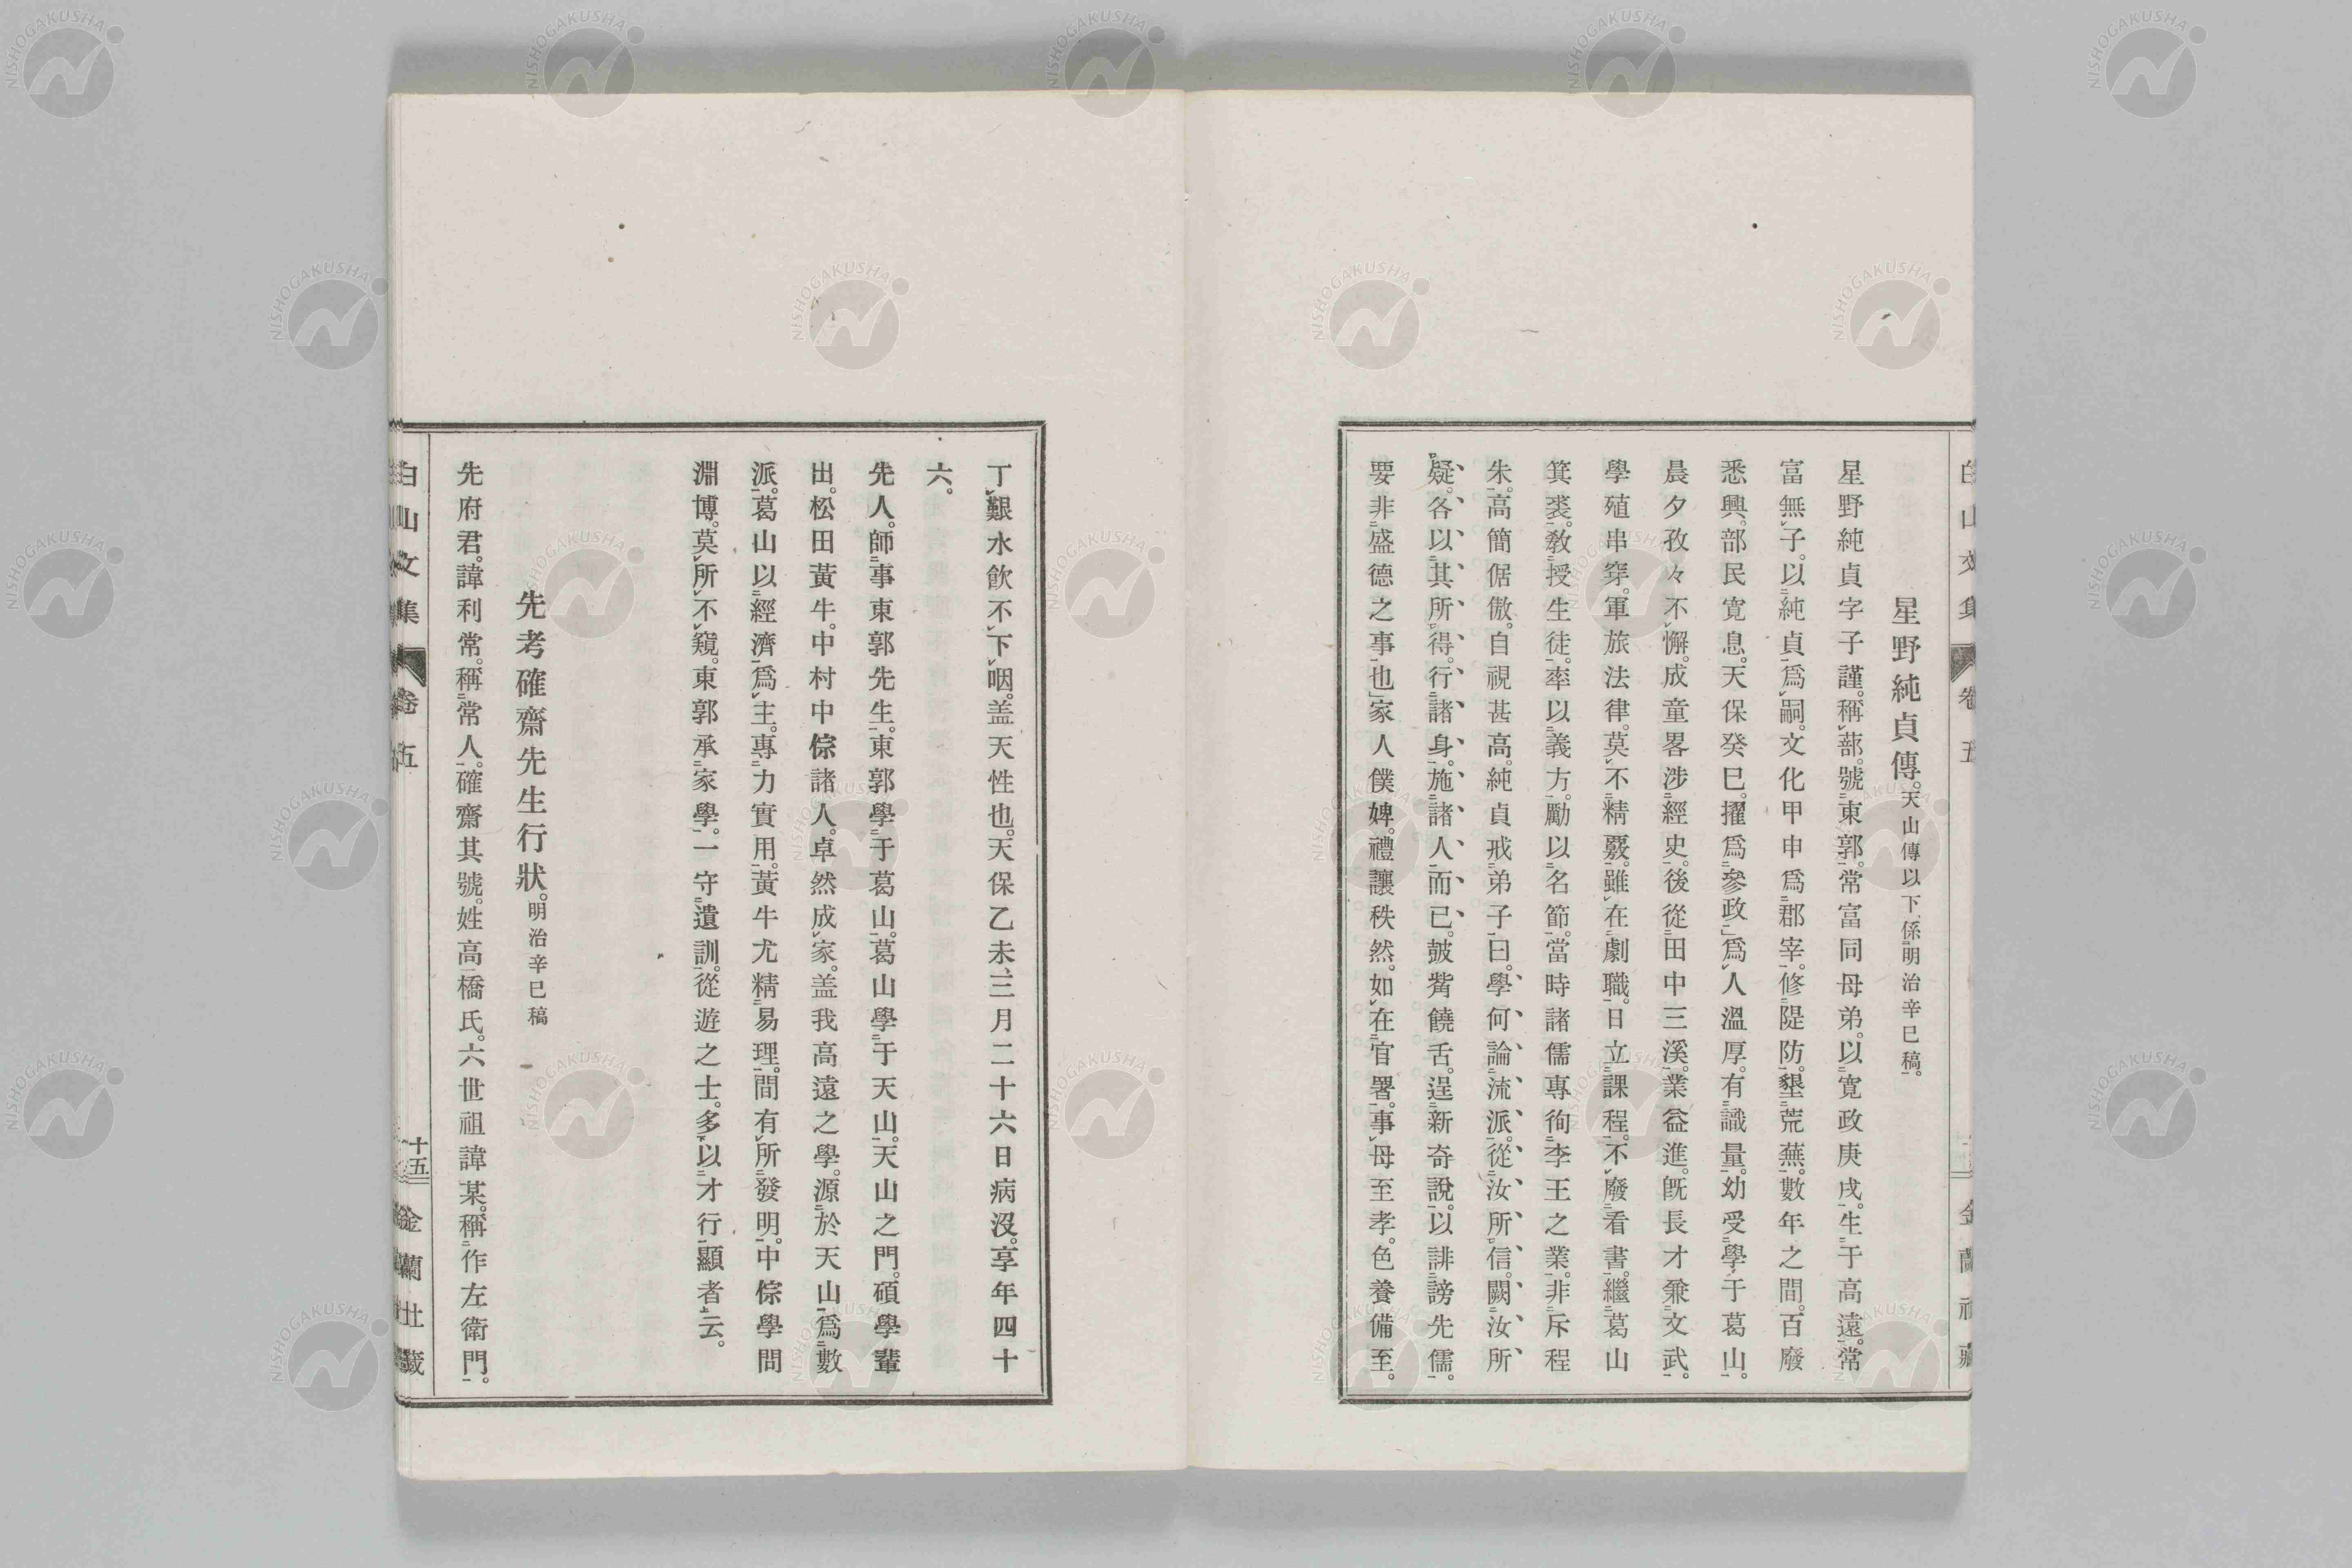 白山文集 卷五
星野純貞傳。天山傳以下、係明治辛巳稿。
星野純貞字子謹。稱蔀。號東郭。常富同母弟。以寛政庚戌。生于高遠。常
富無子。以純貞爲嗣。文化甲申爲郡宰。修隄防。墾荒蕪。數年之間。百廢
悉興。部民寛息。天保癸巳。擢爲參政」爲人溫厚。有識量。幼受學于葛山。
晨夕孜々不懈。成童畧涉經史。後從田中三溪。業益進。旣長才兼文武。
學殖串穿。軍旅法律。莫不精覈。雖在劇職。日立課程。不廢看書。繼葛山
箕裘。敎授生徒。率以義方。勵以名節。當時諸儒專徇李王之業。非斥程
朱。高簡倨傲。自視甚高。純貞戒弟子曰。學何論流派。從汝所信。闕汝所
疑。各以其所得。行諸身。施諸人而已。皷觜饒舌。逞新奇說。以誹謗先儒。
要非盛德之事也」家人僕婢。禮讓秩然。如在官署。事母至孝。色養備至。
丁艱水飮不下咽。盖天性也。天保乙未、三月二十六日病沒。享年四十
六。
先人。師事東郭先生。東郭學于葛山。葛山學于天山。天山之門。碩學輩
出。松田黃牛。中村中倧諸人。卓然成家。盖我高遠之學。源於天山。爲數
派。葛山以經濟爲主。專力實用。黃牛尤精易理。間有所發明。中倧學問
淵博。莫所不窺。東郭承家學。一守遺訓。從遊之士。多以才行顯者云。
先考確齋先生行狀。明治辛巳稿
先府君。諱利常。稱常人。確齋其號。姓高橋氏。六世祖諱某。稱作左衛門。
白山文集 卷五 十五 金蘭社藏